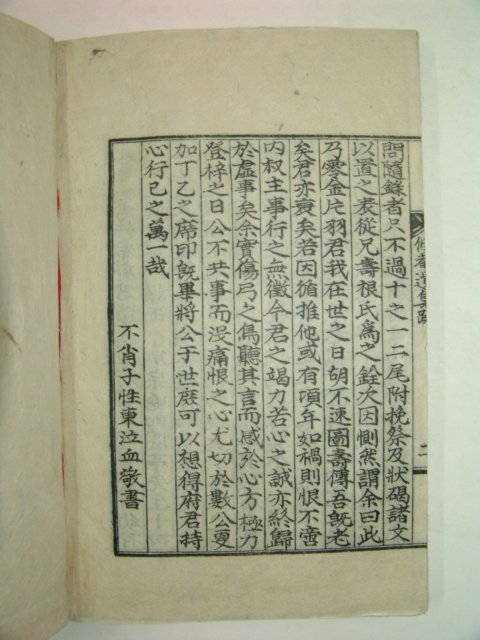 問隨錄者只不過十之一二尾附挽祭及狀碣諸文
以置之表從兄壽根氏爲之銓次因惻然謂余曰此
乃零金片羽君我在世之日胡不速圖壽傳吾旣老
矣君亦衰矣若因循推他或有頃年如禍則恨不啻
內叔主事行之無徵今君之竭力苦心之誠亦終歸
於虛事矣余實傷弓之鳥聽其言而感於心方極力
登梓之日公不共事而沒痛恨之心尤切於數公夏
加丁乙之席印旣畢將公于世庶可以想得府君持
心行己之萬一哉
不肖子性東泣血敬書
二